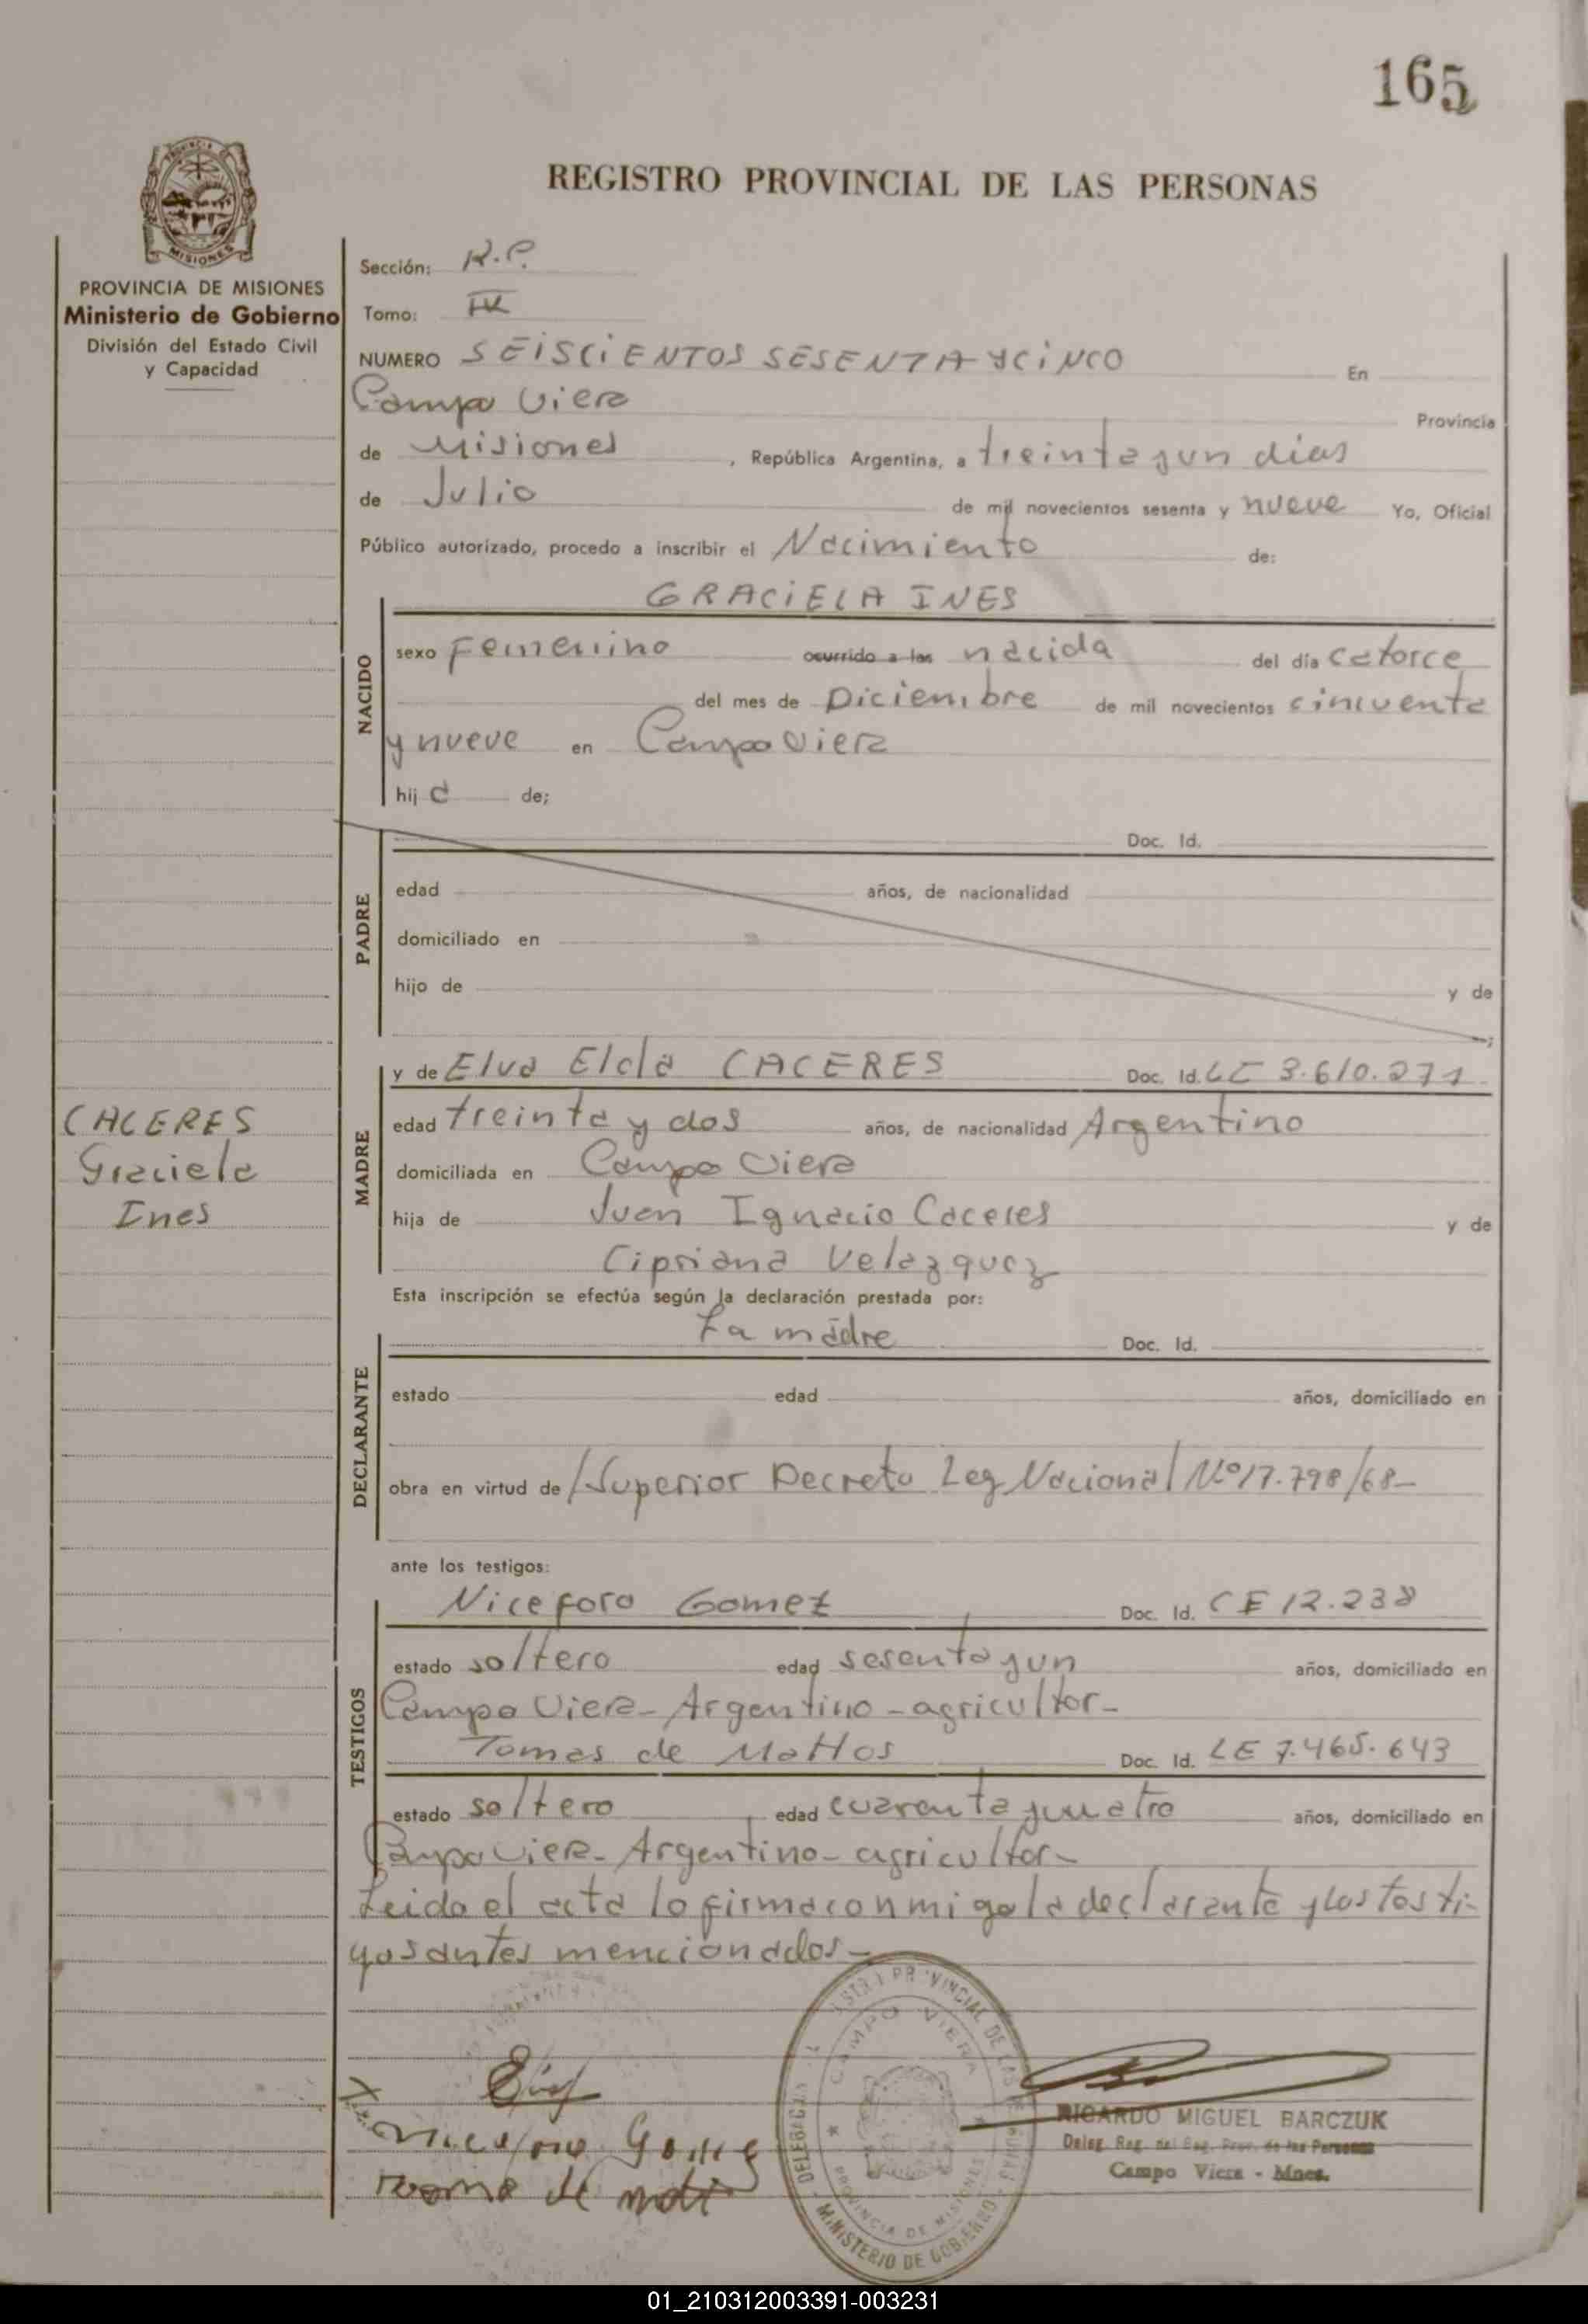 165
REGISTRO PROVINCIAL DE LAS PERSONAS
PROVINCIA DE MISIONES
Ministerio de Gobierno
División del Estado Civil
y Capacidad
Sección: R.P.
Tomo: IV
NUMERO SEISCIENTOS SESENTA Y CINCO En
Campo Viera Provincia
de Misiones, República Argentina, a treinta y un días
de Julio de mil novecientos sesenta y nueve Yo, Oficial
Público autorizado, procedo a inscribir el Nacimiento de:
GRACIELA INES
NACIDO
sexo Femenino ocurrido a las nacida del día catorce
del mes de Diciembre de mil novecientos cincuenta
y nueve en Campo Viera
hija de;
PADRE
Doc. Id.
edad años, de nacionalidad
domiciliado en
hijo de y de
;
MADRE
y de Elva Elda CACERES Doc. Id. LC 3.610.271
edad treinta y dos años, de nacionalidad Argentino
domiciliada en Campo Viera
hija de Juan Ignacio Caceres y de
Cipriana Velazquez
CACERES
Graciela
Ines
Esta inscripción se efectúa según la declaración prestada por:
DECLARANTE
La madre Doc. Id.
estado edad años, domiciliado en
obra en virtud de /Superior Decreto Ley Nacional Nº 17.798/68-
ante los testigos:
TESTIGOS
Niceforo Gomez Doc. Id. CE 12.238
estado soltero edad sesenta y un años, domiciliado en
Campo Viera - Argentino - agricultor-
Tomas de Mattos Doc. Id. LE 7.465.643
estado soltero edad cuarenta y cuatro años, domiciliado en
Campo Viera - Argentino - agricultor-
Leida el acta lo firma conmigo la declarante y los testi-
gos antes mencionados-
DELEGACION
PROVINCIAL DE LAS
CAMPO VIERA
PROVINCIA DE MISIONES
MINISTERIO DE GOBIERNO
RICARDO MIGUEL BARCZUK
Deleg. Reg. del Reg. Prov. de las Personas
Campo Viera - Mnes.
01_210312003391-003231